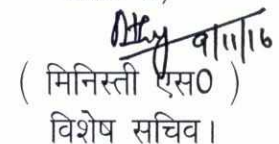 9/11/16
( मिनिस्ती एस0 )
विशेष सचिव।